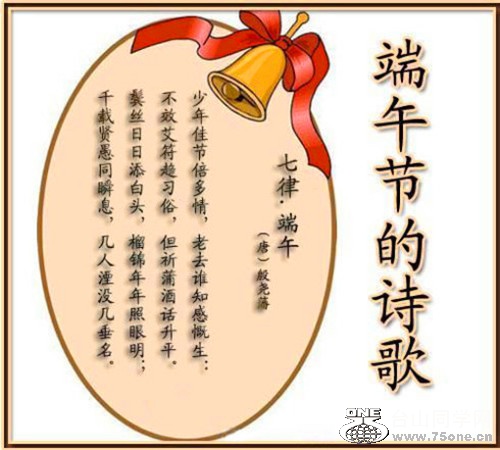 端午节的诗歌
七律·端午
（唐）殷尧藩
少年佳节倍多情，老去谁知感慨生；
不效艾符趋习俗，但祈蒲酒话升平。
鬓丝日日添白头，榴锦年年照眼明；
千载贤愚同瞬息，几人湮没几垂名。
ONE
www.75one.cn